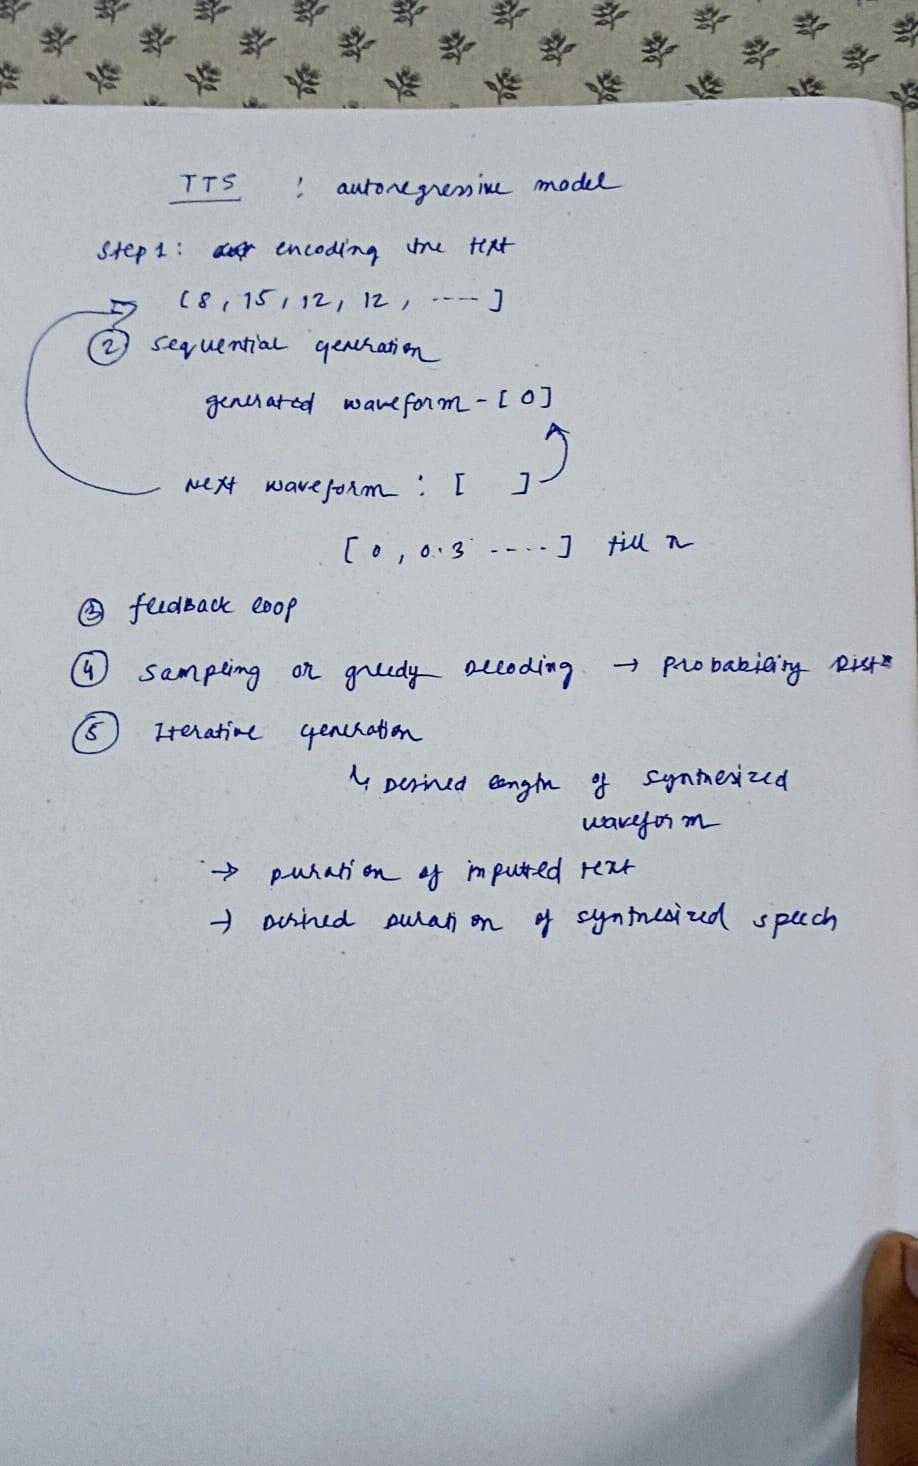 TTS : autoregressive model
Step 1: encoding the text
[8, 15, 12, 12, ----]
② sequential generation
generated waveform - [0]
Next waveform : [ ]
[0, 0.3 ----] till n
③ feedback loop
④ sampling or greedy decoding → Probability Distn
⑤ Iterative generation
↳ Desired length of synthesized
waveform
→ Duration of inputted text
→ Desired duration of synthesized speech